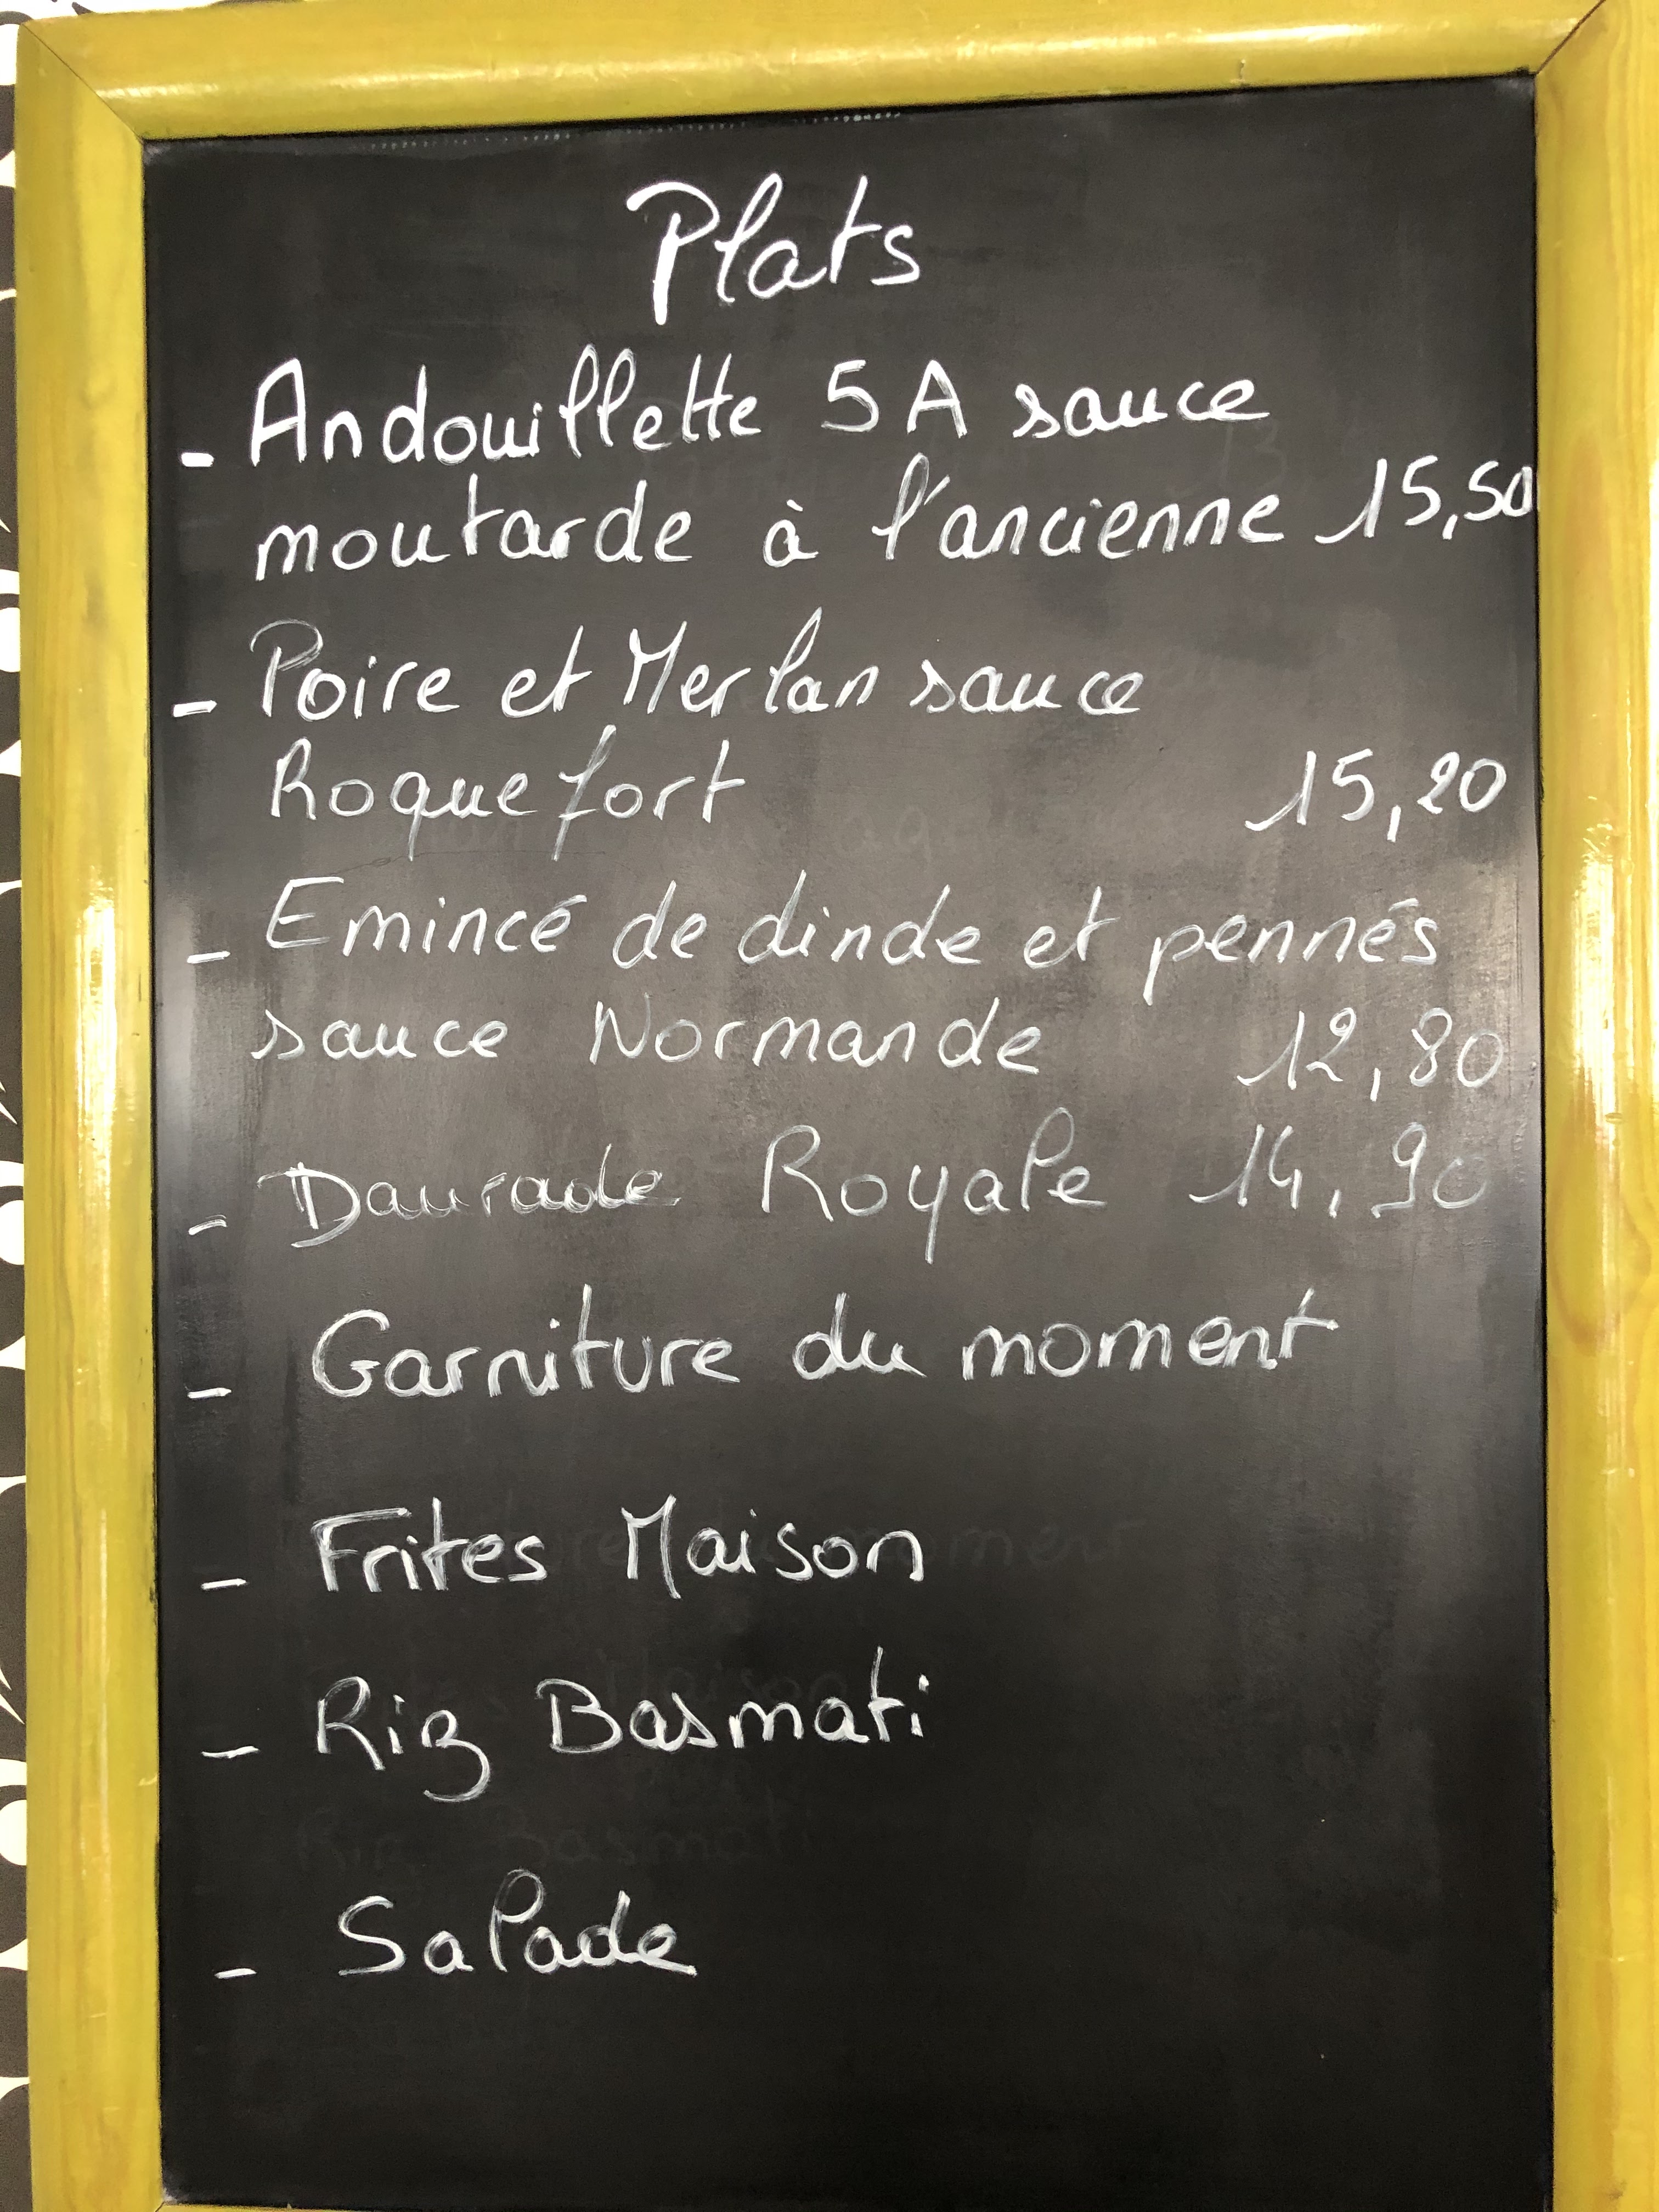 Plats
- Andouillette 5A sauce
moutarde à l'ancienne 15,50
- Poire et Merlan sauce
Roquefort 15,20
- Emincé de dinde et pennés
sauce Normande 12,80
- Daurade Royale 14,90
- Garniture du moment
- Frites Maison
- Riz Basmati
- Salade